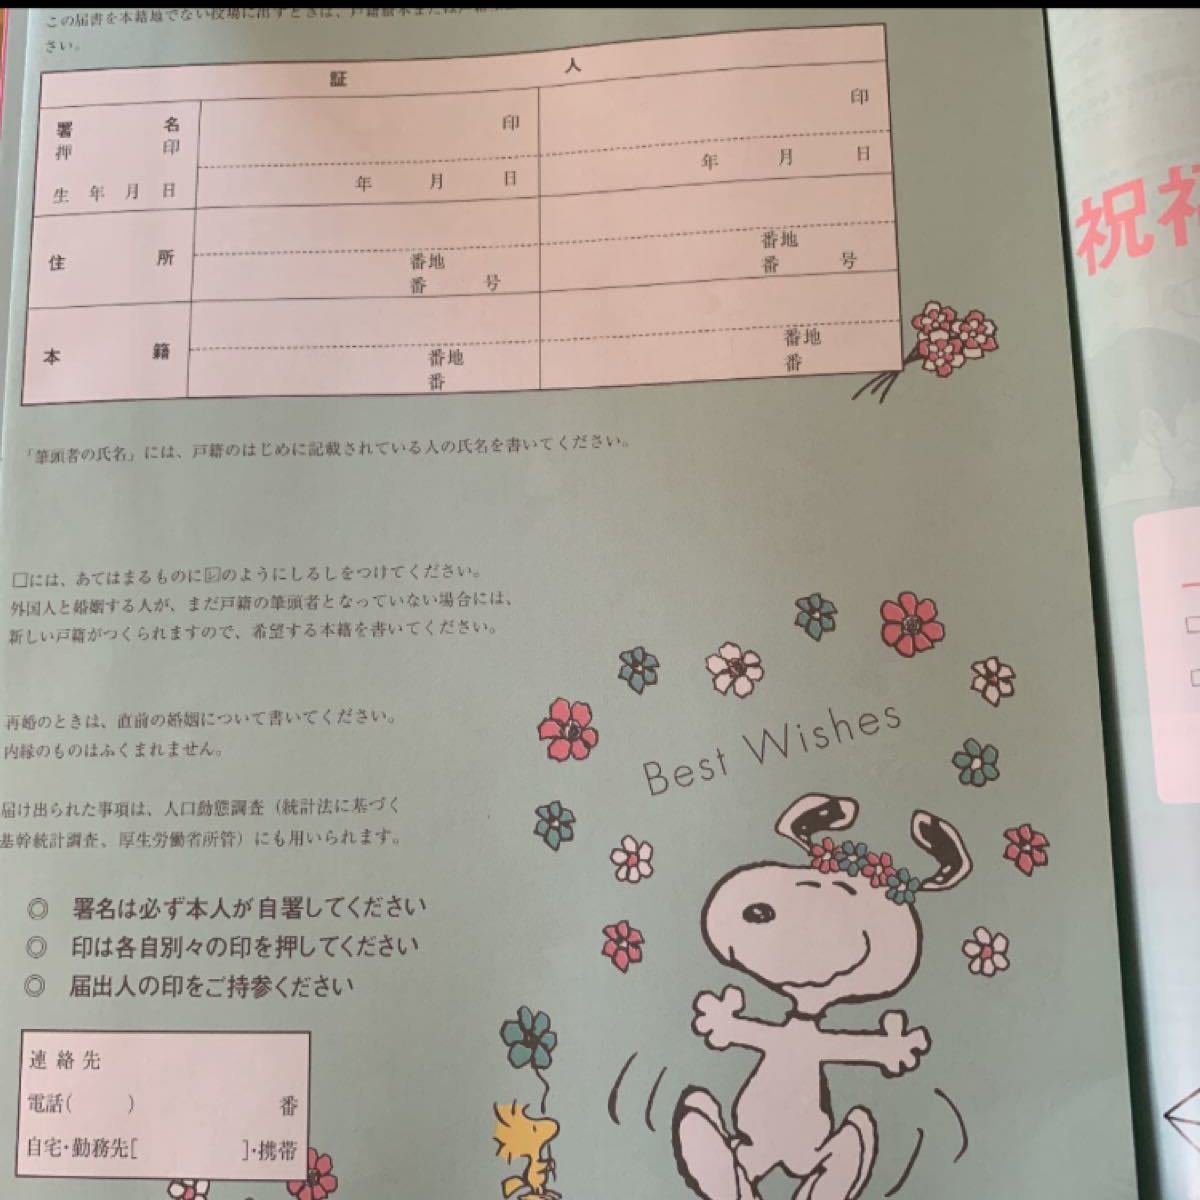 この届書を本籍地でない役場に出すときは、戸籍謄本または戸籍
さい。
証 人
署 名
押 印
印 印
生 年 月 日
年 月 日 年 月 日
住 所
番地 番地
番 号 番 号
本 籍
番地 番地
番 番
「筆頭者の氏名」には、戸籍のはじめに記載されている人の氏名を書いてください。
□には、あてはまるものに☑のようにしるしをつけてください。
外国人と婚姻する人が、まだ戸籍の筆頭者となっていない場合には、
新しい戸籍がつくられますので、希望する本籍を書いてください。
再婚のときは、直前の婚姻について書いてください。
内縁のものはふくまれません。
届け出られた事項は、人口動態調査（統計法に基づく
基幹統計調査、厚生労働省所管）にも用いられます。
◎ 署名は必ず本人が自署してください
◎ 印は各自別々の印を押してください
◎ 届出人の印をご持参ください
連絡先
電話( ) 番
自宅・勤務先[ ]・携帯
Best Wishes
祝